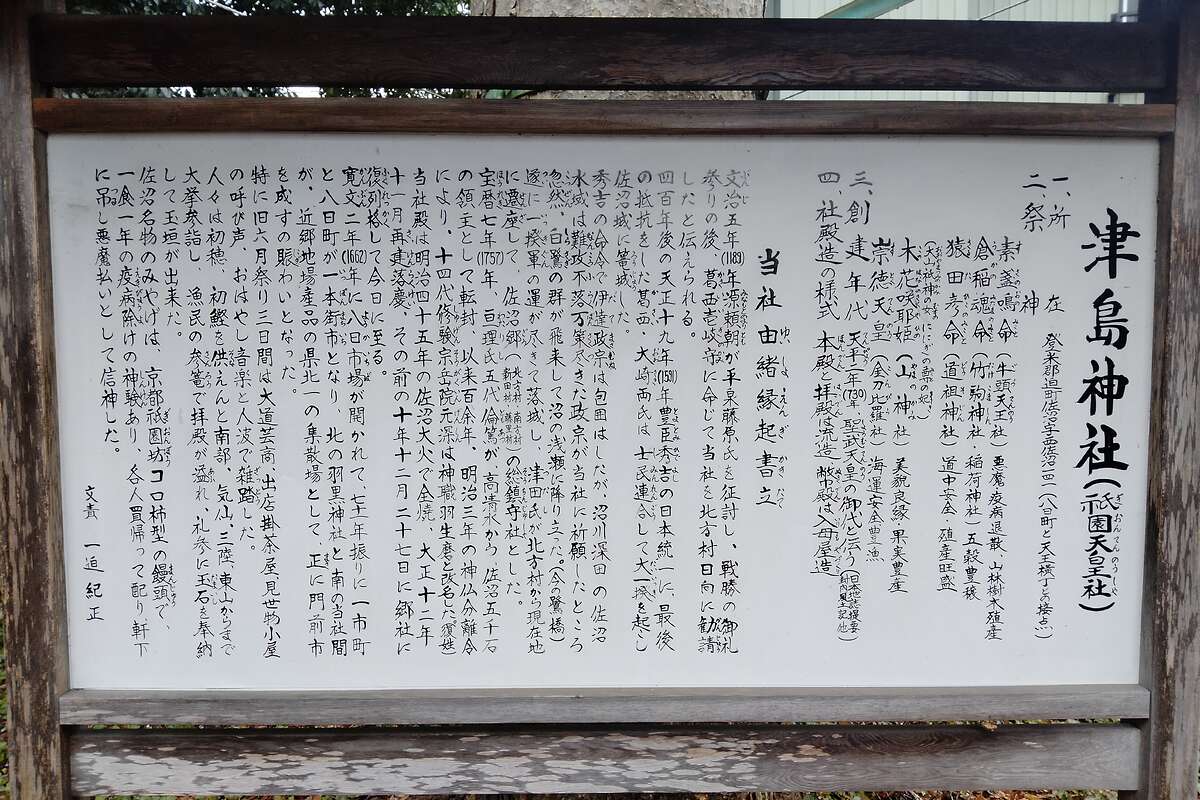 津島神社(祇園天皇社)
一、所 在 登米郡迫町佐沼字西佐沼一四一(八日町と天王横丁との接点)
二、祭 神
素盞鳴命(牛頭天王社)悪魔疫病退散、山林樹木殖産
倉稲魂命(竹駒神社)(稲荷神社)五穀豊穣
猿田彦命(道祖神社)道中安全 殖産旺盛
木花咲耶姫(山神社)美貌良縁・果実豊産
(大山祇神の女 ににぎの尊の妃)
崇徳天皇(金刀比羅社)海運安全豊漁
三、創建年代 天平二年(730年)聖武天皇の御代と云う
四、社殿造の様式 本殿、拝殿は流造、幣殿は入母屋造
当社由緒縁起書立
文治五年(1189)年源頼朝が平泉藤原氏を征討し、戦勝の御礼
参りの後、葛西壱岐守に命じて当社を北方村日向に勧請
したと伝えられる。
四百年後の天正十九年(1591)年豊臣秀吉の日本統一に、最後
の抵抗をした葛西、大崎両氏は、士民連合して大一揆を起し
佐沼城に篭城した。
秀吉の命令で伊達政宗は包囲はしたが、沼川深田の佐沼
水城は難攻不落万策尽きた政宗が当社に祈願したところ
忽然、白鷺の群が飛来して沼の浅瀬に降り立つ。(今の鷺橋)
遂に一揆軍の運が尽きて落城し、津田氏が北方村から現在地
に遷座して、佐沼郷(北方村 南方村 新田村)の総鎮守社とした。
宝暦七年(1757)年、亘理氏五代倫篤が高清水から佐沼五千石
の領主として転封、以来百余年、明治三年の神仏分離令
により、十四代修験宗岳院元深は神職羽生麿と改名した。(復姓)
当社殿は明治四十五年の佐沼大火で全焼、大正十二年
十一月再建落慶、その前の十年十二月二十七日に郷社に
復列格して今日に至る。
寛文二年(1662)年に八日市場が開かれて、七十一年振りに一市町
と八日町が一本街市となり、北の羽黒神社と南の当社間
が、近郷地場産品の県北一の集散場として、正に門前市
を成すの賑わいとなった。
特に旧六月祭り三日間は大道芸商、出店掛茶屋、見世物小屋
の呼び声、おはやし音楽と人波で雑踏した。
人々は初穂、初鰹を供えんと南部、気仙、三陸、東山からまで
大挙参詣し、漁民の参篭で拝殿が溢れ、礼参に玉石を奉納
して玉垣が出来た。
佐沼名物のみやげは、京都祇園坊コロ柿型の饅頭で、
一食一年の疫病除けの神験あり、各人買帰って配り軒下
に吊し悪魔払いとして信神した。
文責 一迫紀正